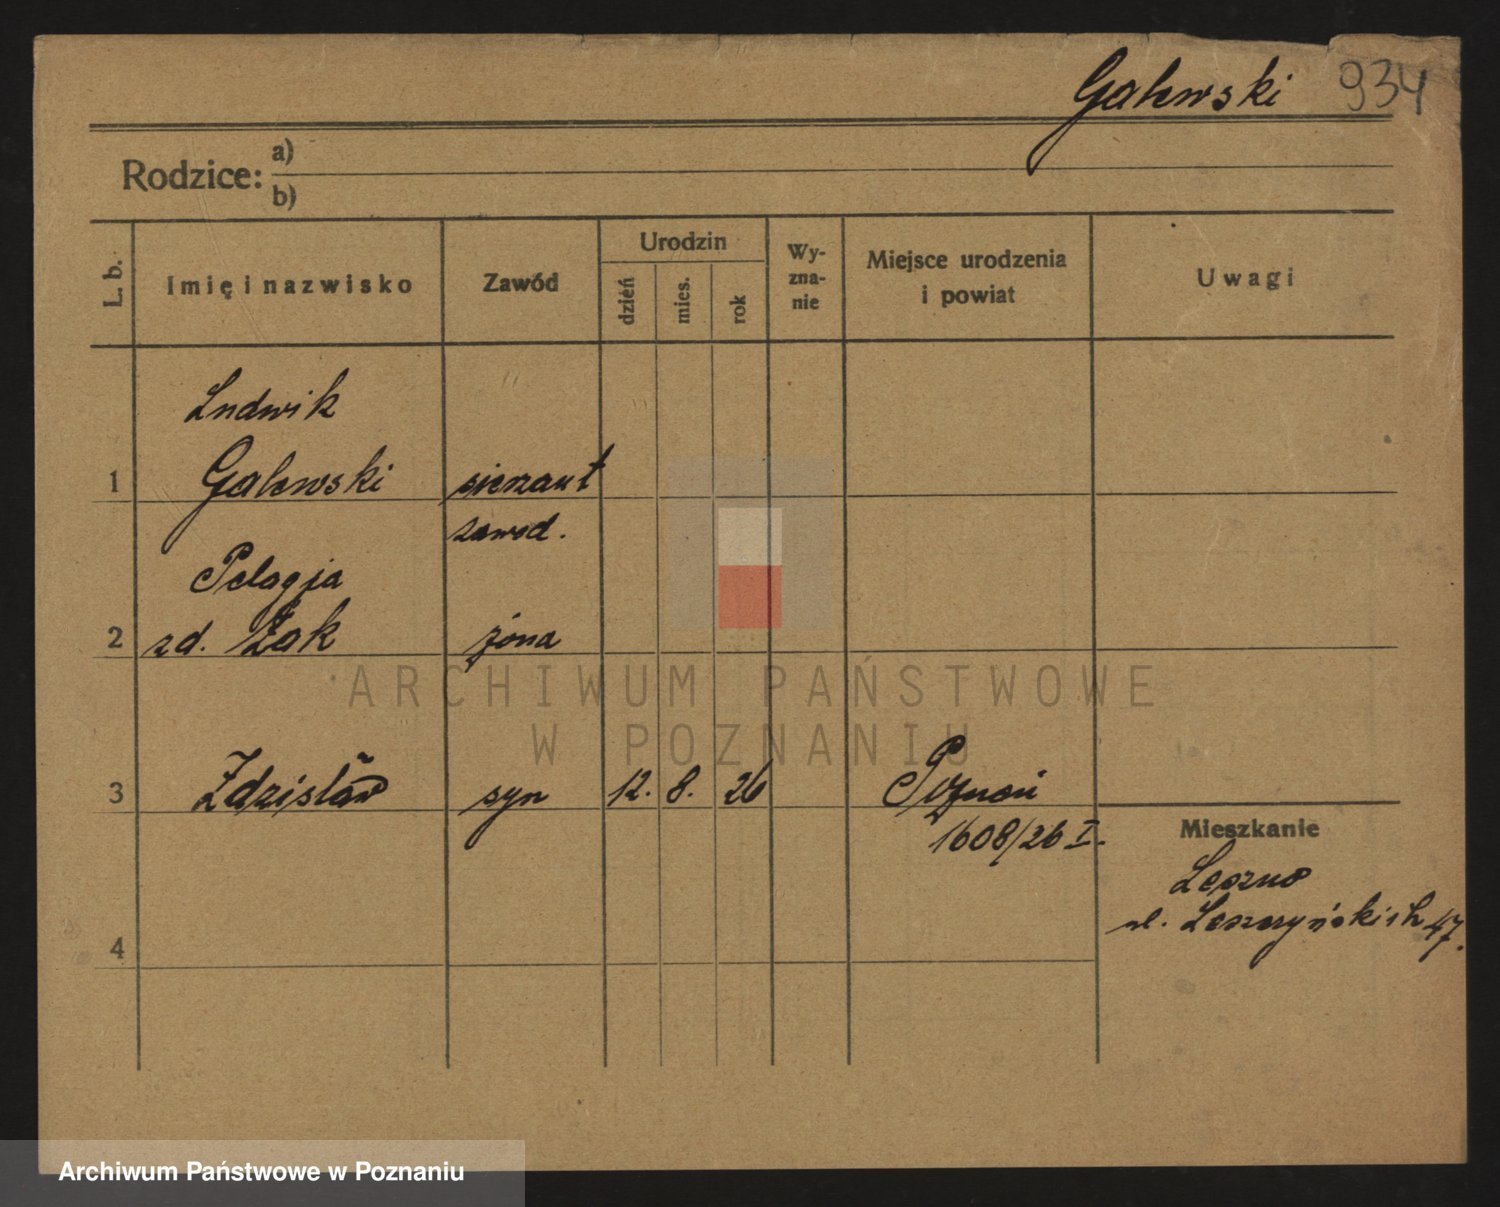 Galewski 934
Rodzice: a)
b)
L. b.
Imię i nazwisko
Zawód
Urodzin
dzień
mies.
rok
Wy-
zna-
nie
Miejsce urodzenia
i powiat
Uwagi
Ludwik
1 Galewski sierżant
zawod.
Pelagja
2 zd. Żak żona
3 Zdzisław syn 12. 8. 26 Poznań
1608/26 I.
Mieszkanie
Leszno
ul. Leszczyńskich 47.
4
ARCHIWUM PAŃSTWOWE
W POZNANIU
Archiwum Państwowe w Poznaniu